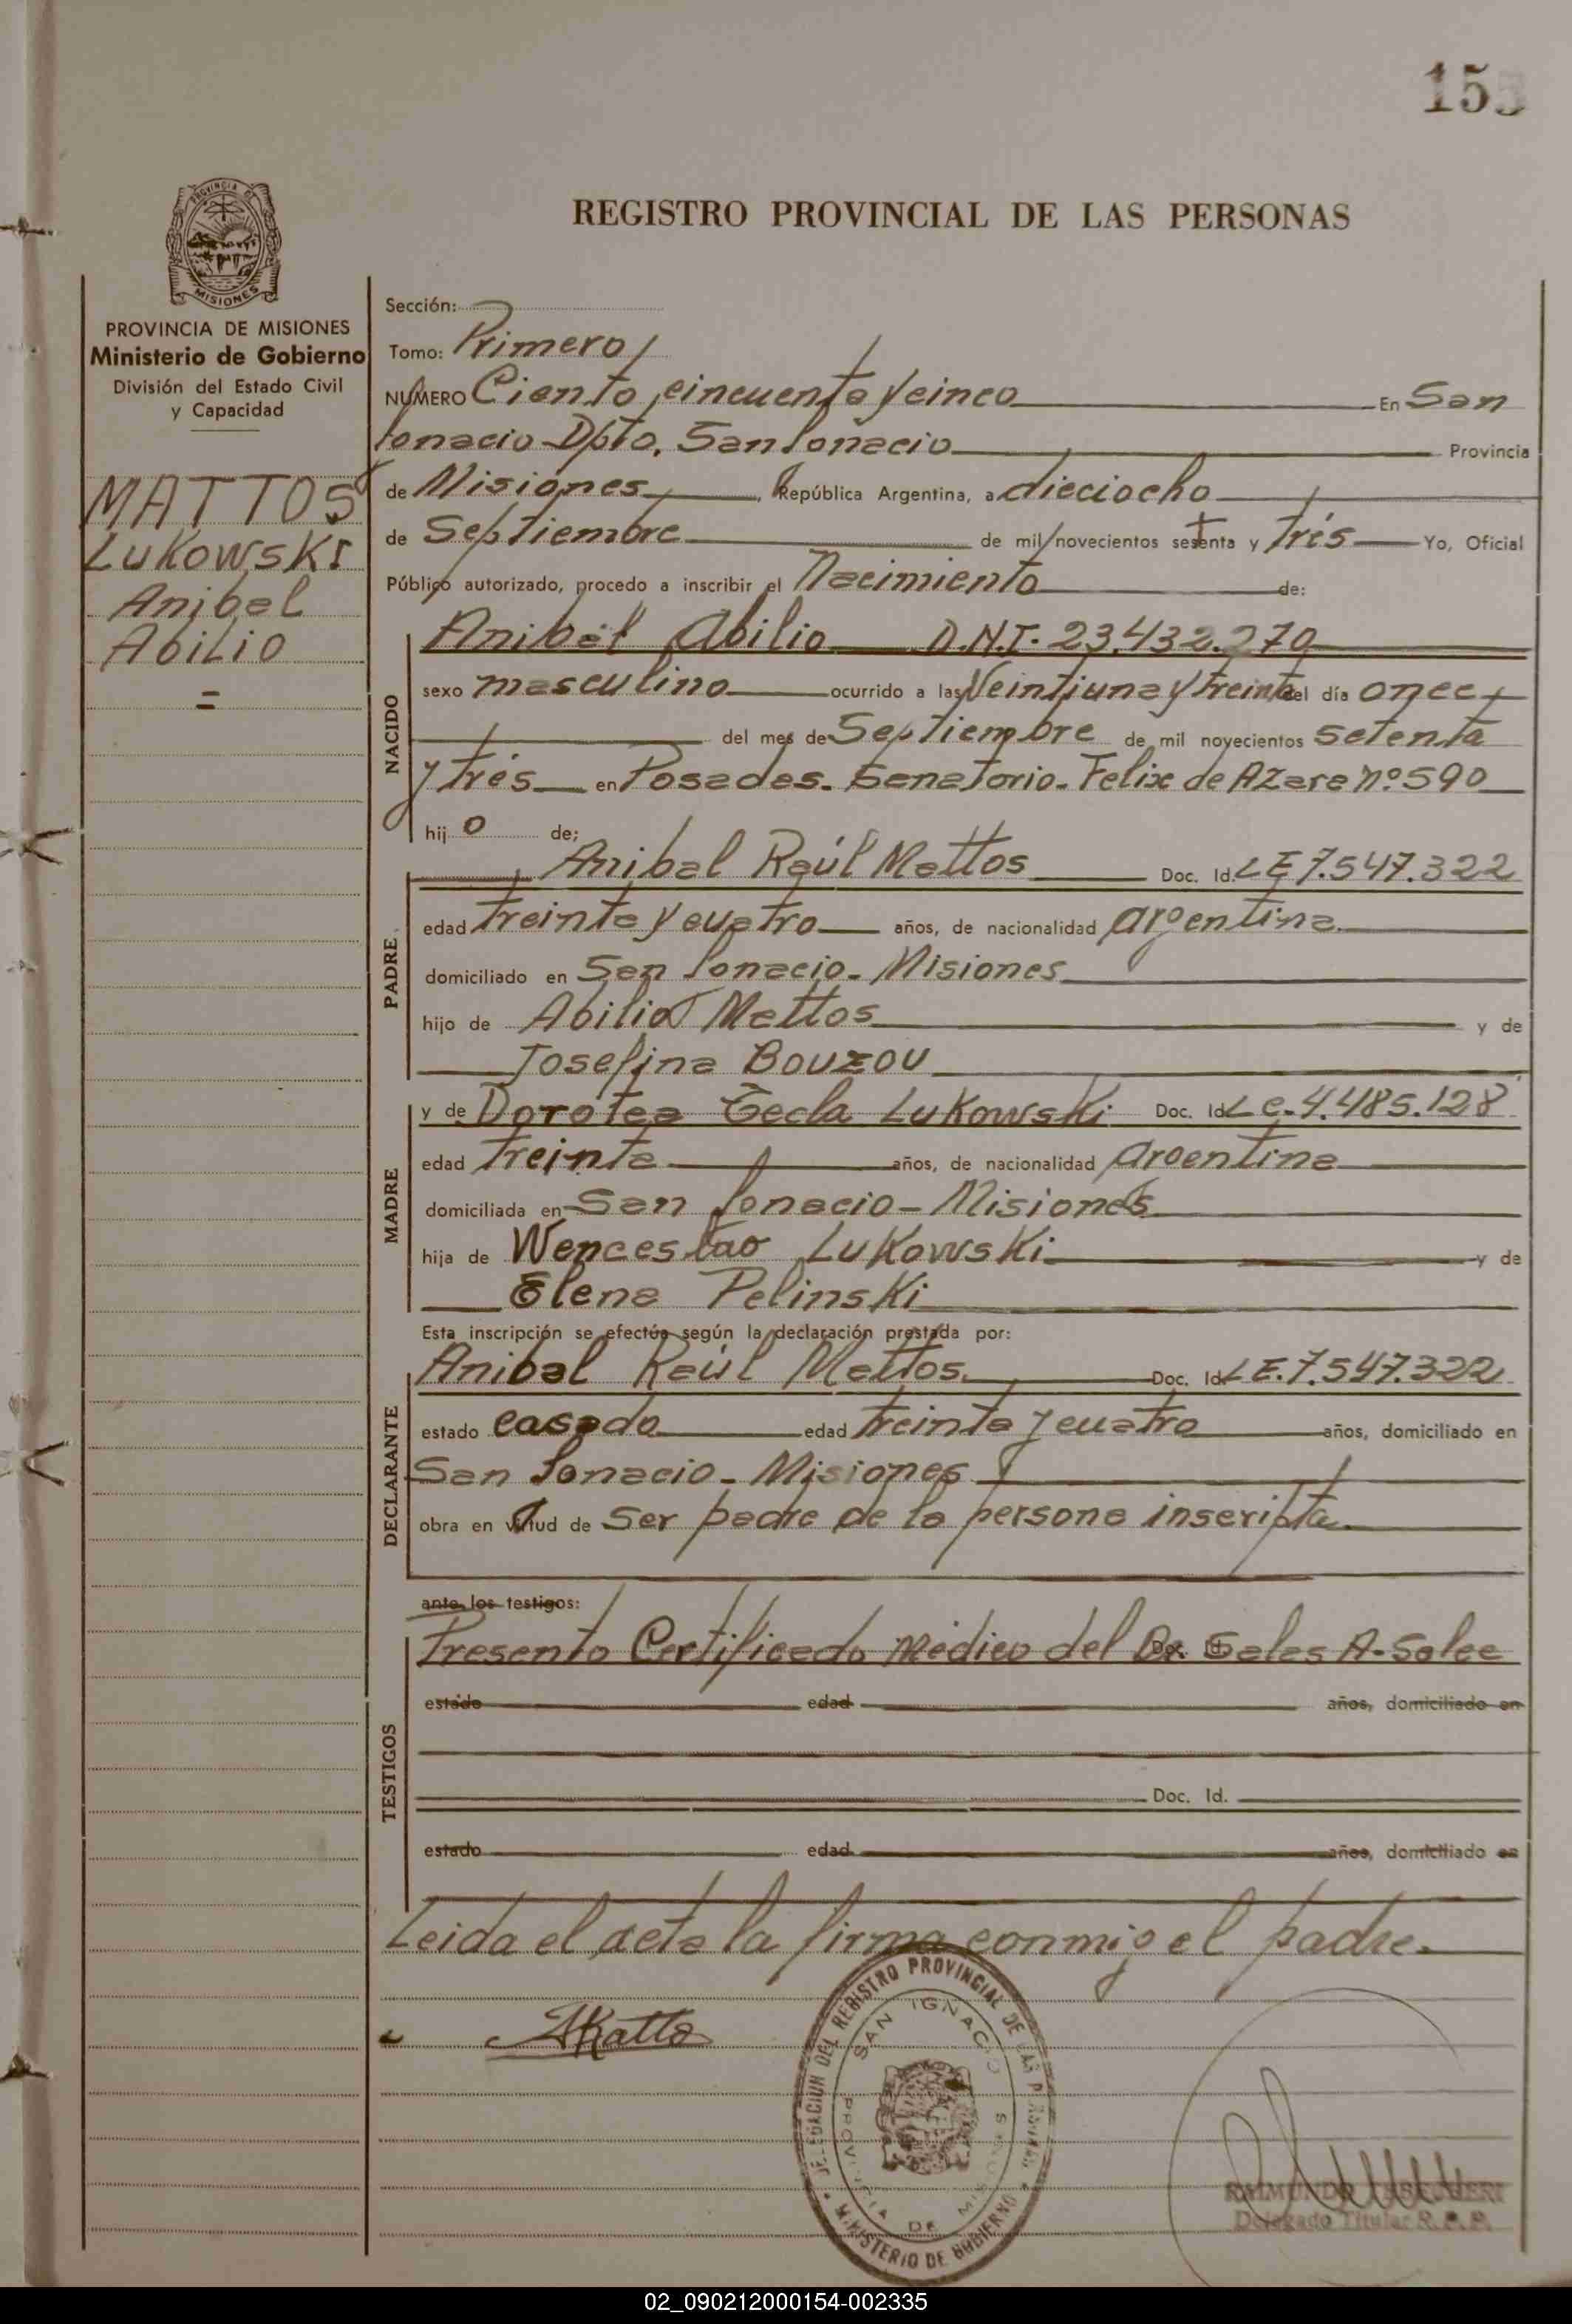 155
REGISTRO PROVINCIAL DE LAS PERSONAS
PROVINCIA DE MISIONES
PROVINCIA DE MISIONES
Ministerio de Gobierno
División del Estado Civil
y Capacidad
MATTOS
Lukowski
Anibal
Abilio
=
Sección:
Tomo: Primero
NUMERO Ciento cincuenta y cinco En San
Ignacio Dpto. San Ignacio Provincia
de Misiones, República Argentina, a dieciocho
de Septiembre de mil novecientos setenta y trés Yo, Oficial
Público autorizado, procedo a inscribir el Nacimiento de:
NACIDO
Anibal Abilio D.N.I. 23.432.270
sexo masculino ocurrido a las Veintiuna y treinta del día once
del mes de Septiembre de mil novecientos setenta
y trés en Posadas. Sanatorio. Felix de Azara nº 590
hij o de:
PADRE
Anibal Raúl Mattos Doc. Id. LE 7.547.322
edad treinta y cuatro años, de nacionalidad argentina
domiciliado en San Ignacio - Misiones
hijo de Abilio Mattos y de
Josefina Bouzou
MADRE
y de Dorotea Tecla Lukowski Doc. Id. L C. 4.485.128
edad treinta años, de nacionalidad argentina
domiciliada en San Ignacio - Misiones
hija de Wenceslao Lukowski y de
Elena Pelinski
Esta inscripción se efectúa según la declaración prestada por:
DECLARANTE
Anibal Raúl Mattos Doc. Id. L E. 7.547.322
estado casado edad treinta y cuatro años, domiciliado en
San Ignacio - Misiones
obra en virtud de ser padre de la persona inscripta.
ante los testigos:
TESTIGOS
Presento Certificado Médico del Dr. Doc. Id. A.
estado edad años, domiciliado en
Doc. Id.
estado edad años, domiciliado en
Leida el acta la firma conmigo el padre.
DELEGACION DEL REGISTRO PROVINCIAL DE LAS PERSONAS
SAN IGNACIO
PROVINCIA DE MISIONES
MINISTERIO DE GOBIERNO
RAIMUNDO
Delegado Titular R.P.P.
02_090212000154-002335